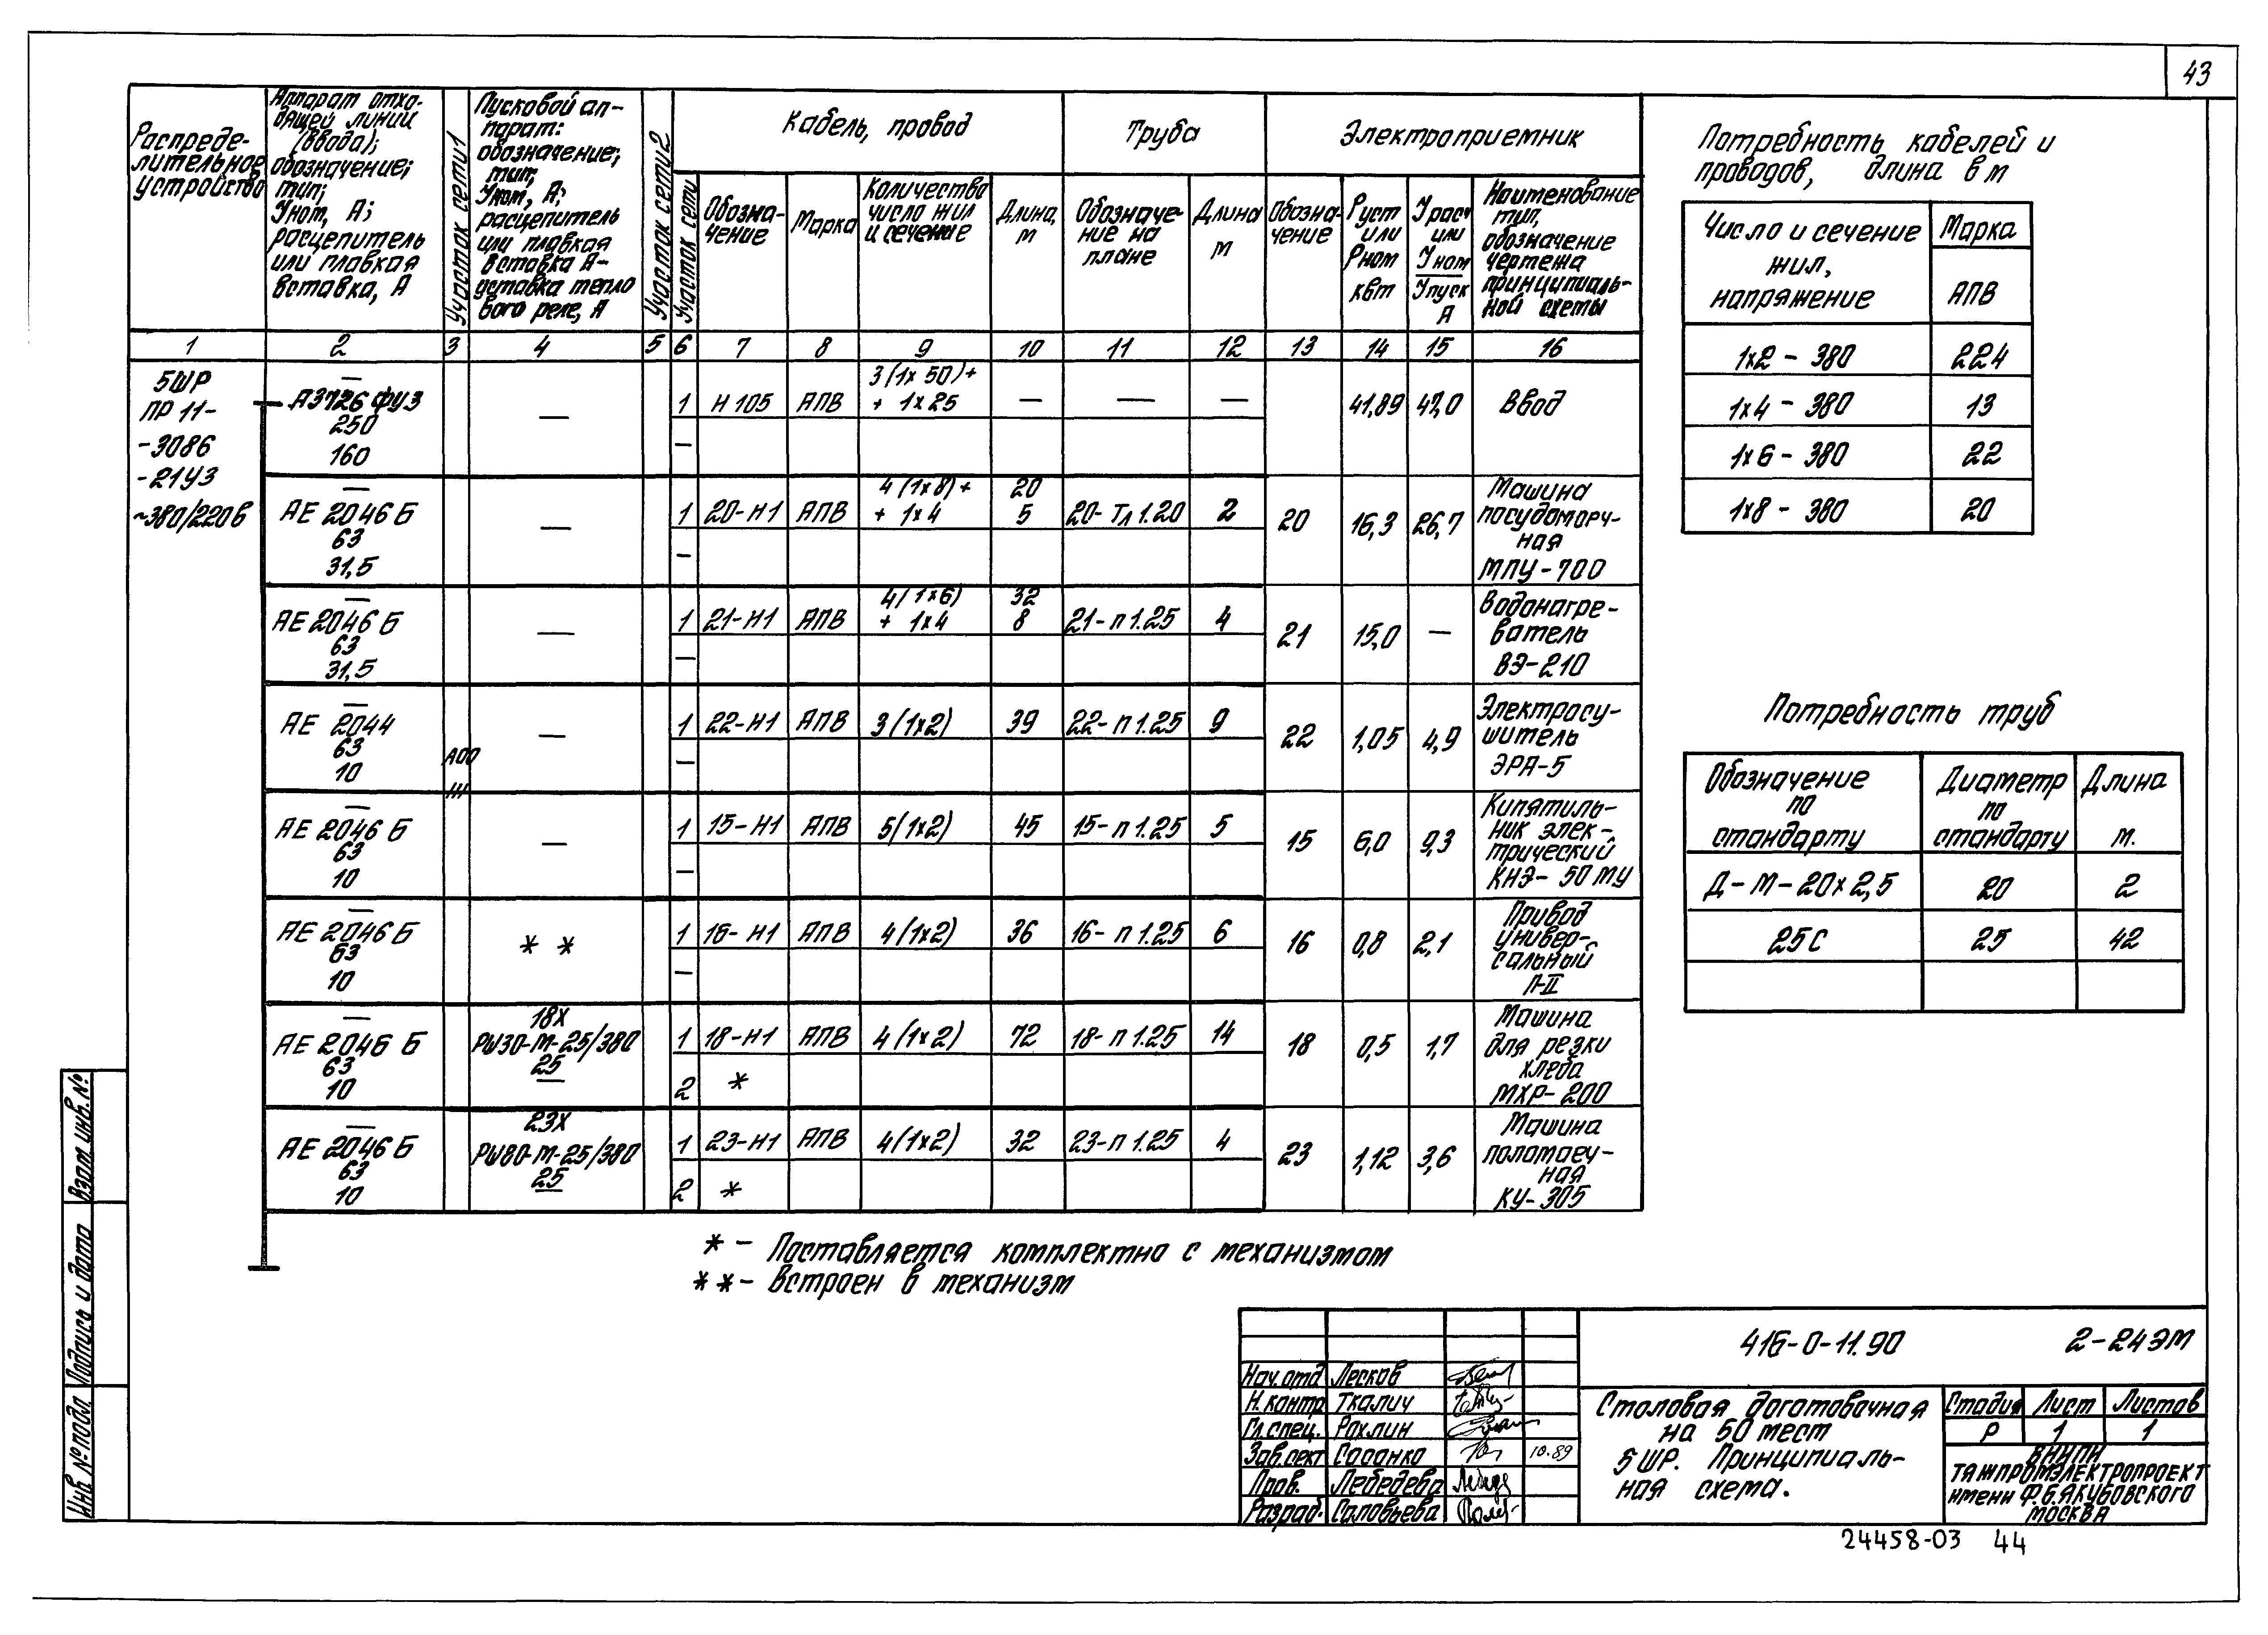 43
Распреде-
лительное
устройство
Аппарат отхо-
дящей линии
(ввода);
обозначение;
тип;
Iном, А;
расцепитель
или плавкая
вставка, А
Участок сети1
Пусковой ап-
парат:
обозначение;
тип;
Iном, А;
расцепитель
или плавкая
вставка А-
уставка тепло
вого реле, А
Участок сети2
Кабель, провод
Участок сети
Обозна-
чение
Марка
Количество
число жил
и сечение
Длина,
м
Труба
Обозначе-
ние на
плане
Длина
м
Электроприемник
Обозна-
чение
Руст
или
Рном
квт
Iрасч
или
Iном
Iпуск
А
Наименование
тип,
обозначение
чертежа
принципиаль-
ной схемы
1 2 3 4 5 6 7 8 9 10 11 12 13 14 15 16
5ШР
ПР 11-
-3086
-21У3
~380/220В
—
А3726 ФУЗ
250
160
—
1 Н105 АПВ 3(1х50)+
+ 1х25 — — — 41,89 47,0 Ввод
—
—
АЕ 2046 Б
63
31,5
—
1 20-Н1 АПВ 4(1х8)+ 20
+ 1х4 5 20-Тл1.20 2 20 16,3 26,7
—
Машина
посудомоеч-
ная
МПУ-700
—
АЕ 2046 Б
63
31,5
—
1 21-Н1 АПВ 4(1х6) 32
+ 1х4 8 21-п1.25 4 21 15,0 —
—
Водонагре-
ватель
ВЭ-210
—
АЕ 2044
63
10
А00
—
1 22-Н1 АПВ 3(1х2) 39 22-п1.25 9 22 1,05 4,9
—
Электросу-
шитель
ЭРА-5
—
АЕ 2046 Б
63
10
—
1 15-Н1 АПВ 5(1х2) 45 15-п1.25 5 15 6,0 9,3
—
Кипятиль-
ник элек-
трический
КНЭ-50МУ
—
АЕ 2046 Б
63
10
* *
1 16-Н1 АПВ 4(1х2) 36 16-п1.25 6 16 0,8 2,1
—
Привод
универ-
сальный
П-II
—
АЕ 2046 Б
63
10
18Х
РШ30-М-25/380
25
—
1 18-Н1 АПВ 4(1х2) 72 18-п1.25 14 18 0,5 1,7
2 *
Машина
для резки
хлеба
МХР-200
—
АЕ 2046 Б
63
10
23Х
РШ80-М-25/380
25
—
1 23-Н1 АПВ 4(1х2) 32 23-п1.25 4 23 1,12 3,6
2 *
Машина
ная
КУ-305
* - Поставляется комплектно с механизмом
* * - Встроен в механизм
Потребность кабелей и
проводов, длина в м
Число и сечение
жил,
напряжение
Марка
АПВ
1х2 - 380 224
1х4 - 380 13
1х6 - 380 22
1х8 - 380 20
Потребность труб
Обозначение
по
стандарту
Диаметр
по
стандарту
Длина
м.
Д-М-20х2,5 20 2
25С 25 42
416-0-11.90 2-24ЭМ
Нач.отд Лесков
Н.контр Ткалич
Гл.спец. Рохлин
Зав.сект 10.89
Пров. Лебедева
Разраб. Соловьева
Столовая доготовочная
на 50 мест
5ШР. Принципиаль-
ная схема.
Стадия Лист Листов
Р 1 1
ВНИПИ
ТЯЖПРОМЭЛЕКТРОПРОЕКТ
имени Ф.Б.ЯКУБОВСКОГО
МОСКВА
24458-03 44
Взам инв.№
Подпись и дата
Инв № подл.